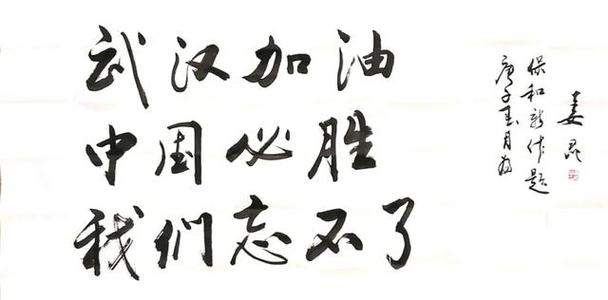 武汉加油
中国必胜
我们忘不了
庚子春月为
保和新作题
姜昆